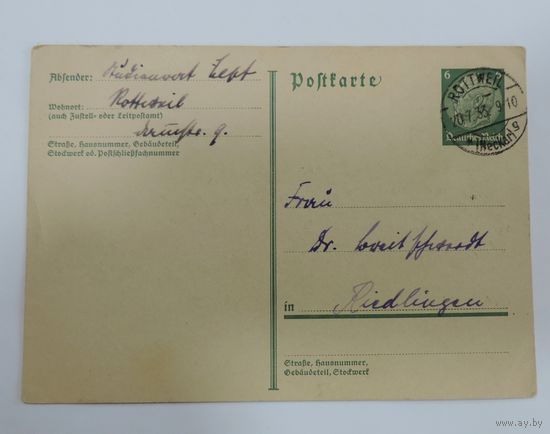 Absender: Studienrat
Wohnort: Rottweil
(auch Zustell- oder Leitpostamt)
Straße, Hausnummer, Gebäudeteil,
Stockwerk od. Postschließfachnummer
Postkarte
6
Deutsches Reich
ROTTWEIL
9-10
(Neckar)
Frau
Dr.
in Riedlingen
Straße, Hausnummer,
Gebäudeteil, Stockwerk
www.ay.by